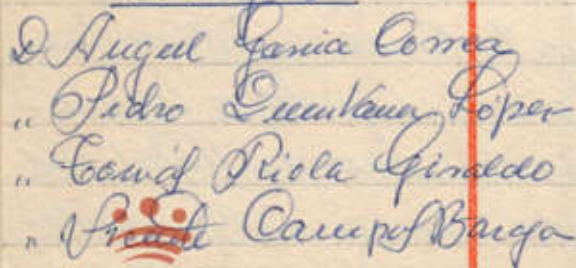 D Angel Garcia Correa
" Pedro Quintana López
" Tomás Riola Giraldo
" Vicente Campos Barga